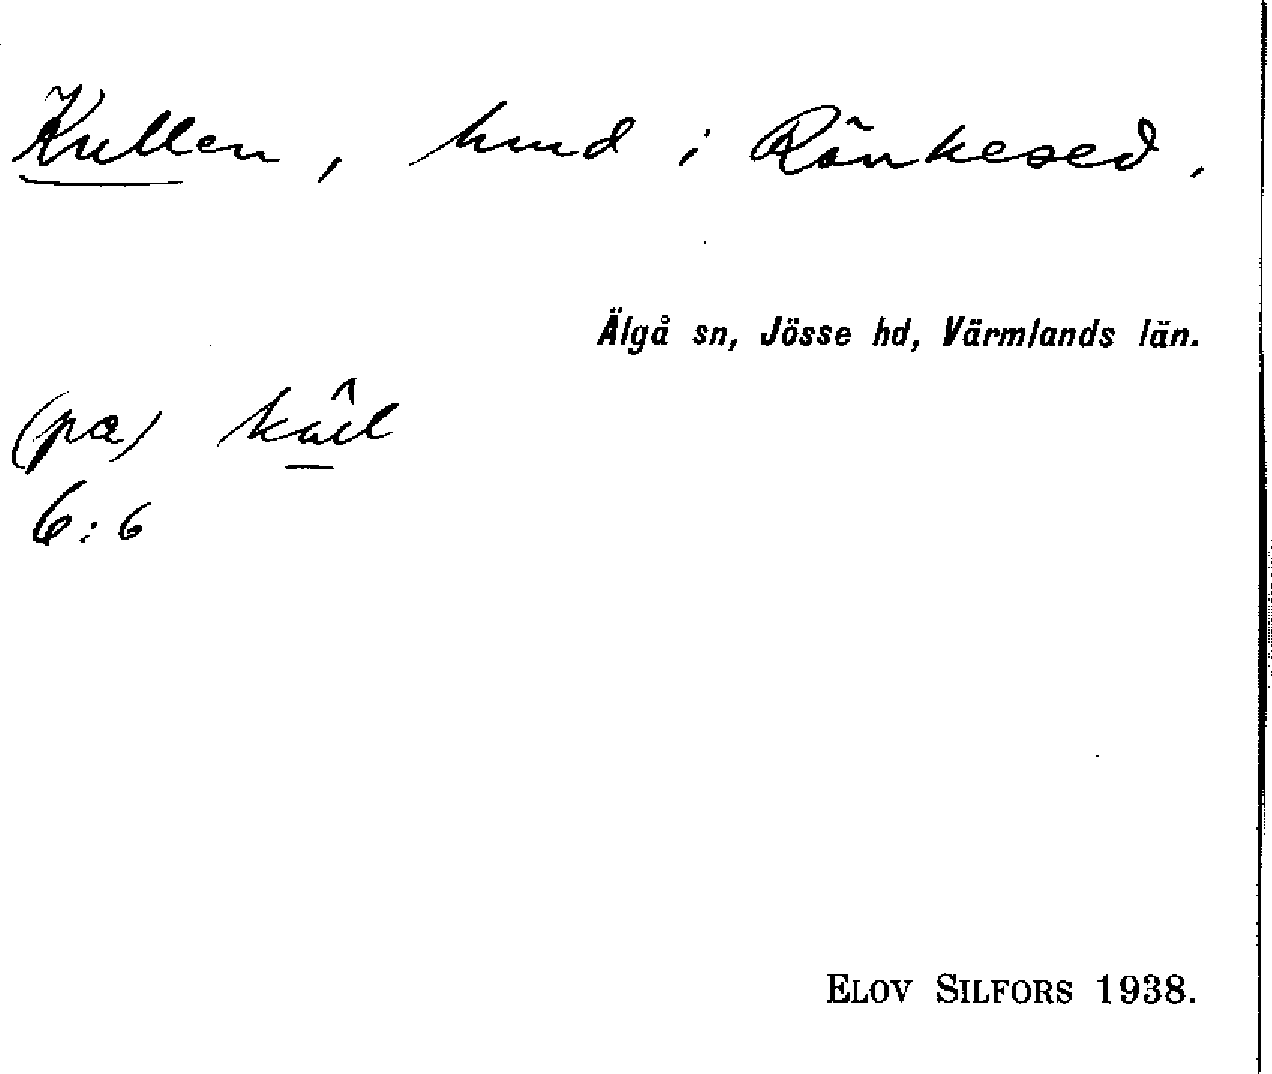 Kullen, hmd i Rönkesed.
Älgå sn, Jösse hd, Värmlands län.
(pa)
6:6
ELOV SILFORS 1938.